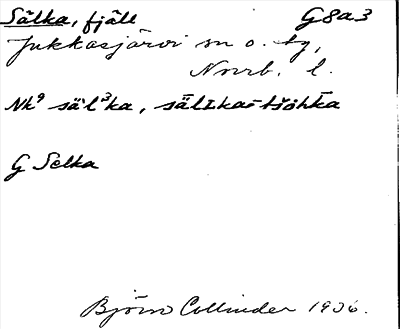 Sälka, fjäll G8a3
Jukkasjärvi sn o. tg,
Norrb. l.
Nk⁹ säl³ka, sälᴌka-tšohka
G Selka
Björn Collinder 1936.